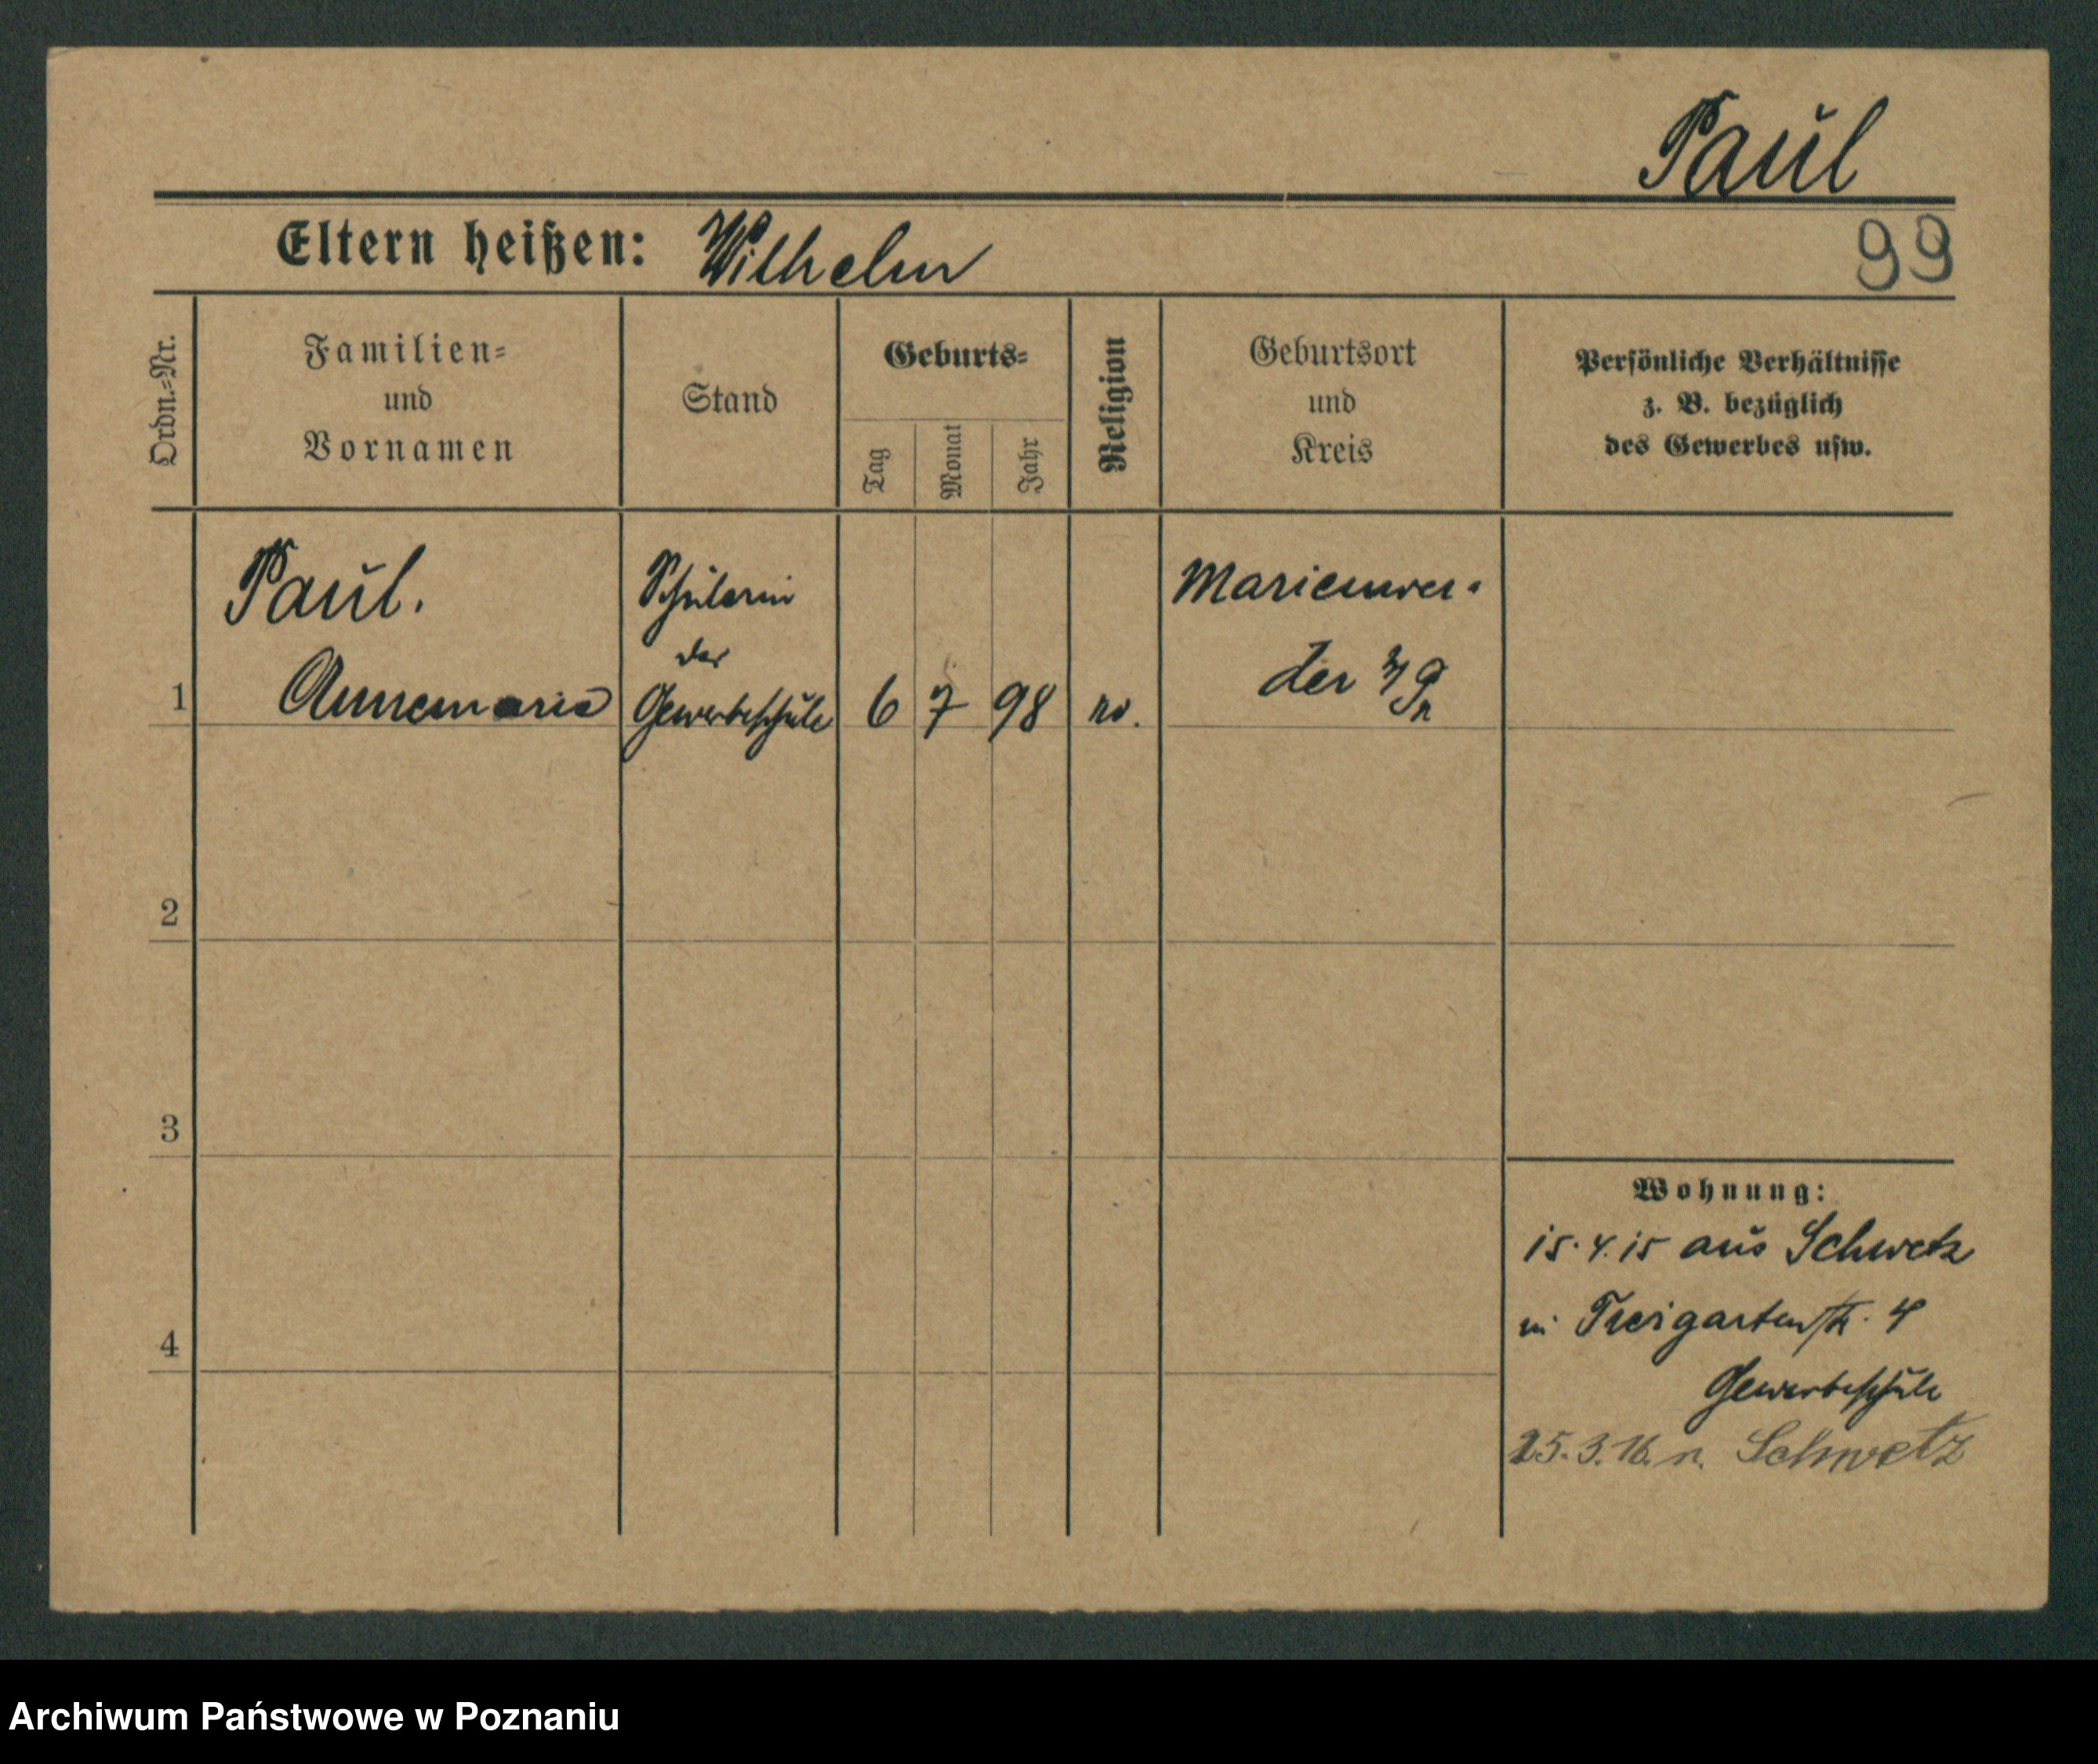 Paul
Eltern heißen: Wilhelm
99
Ordn.=Nr.
Familien=
und
Vornamen
Stand
Geburts=
Tag
Monat
Jahr
Religion
Geburtsort
und
Kreis
Persönliche Verhältnisse
z. B. bezüglich
des Gewerbes usw.
Paul.
Annemarie
Schülerin
der
Gewerbeschule
1
6 7 98
Marienwer-
der
2
3
4
Wohnung:
15.4.15 aus Schwetz
Tiergartenstr. 4
Gewerbeschule
25.3.16. n. Schwetz
Archiwum Państwowe w Poznaniu